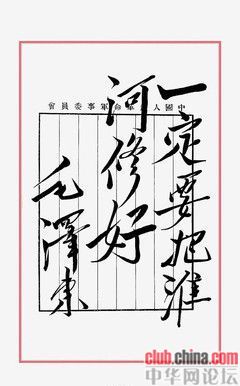 中國人民革命軍事委員會
一定要把淮
河修好
毛澤東
club.china.com
中华网论坛